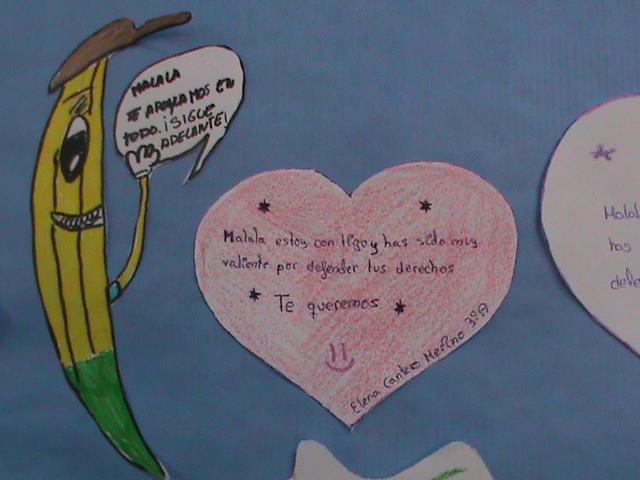 MALALA
TE APOYAMOS EN
TODO. ¡SIGUE
ADELANTE!
Malala estoy contigo y has sido muy
valiente por defender tus derechos
Te queremos
Elena Cantero Merino 3ºA
Malal
has
defe